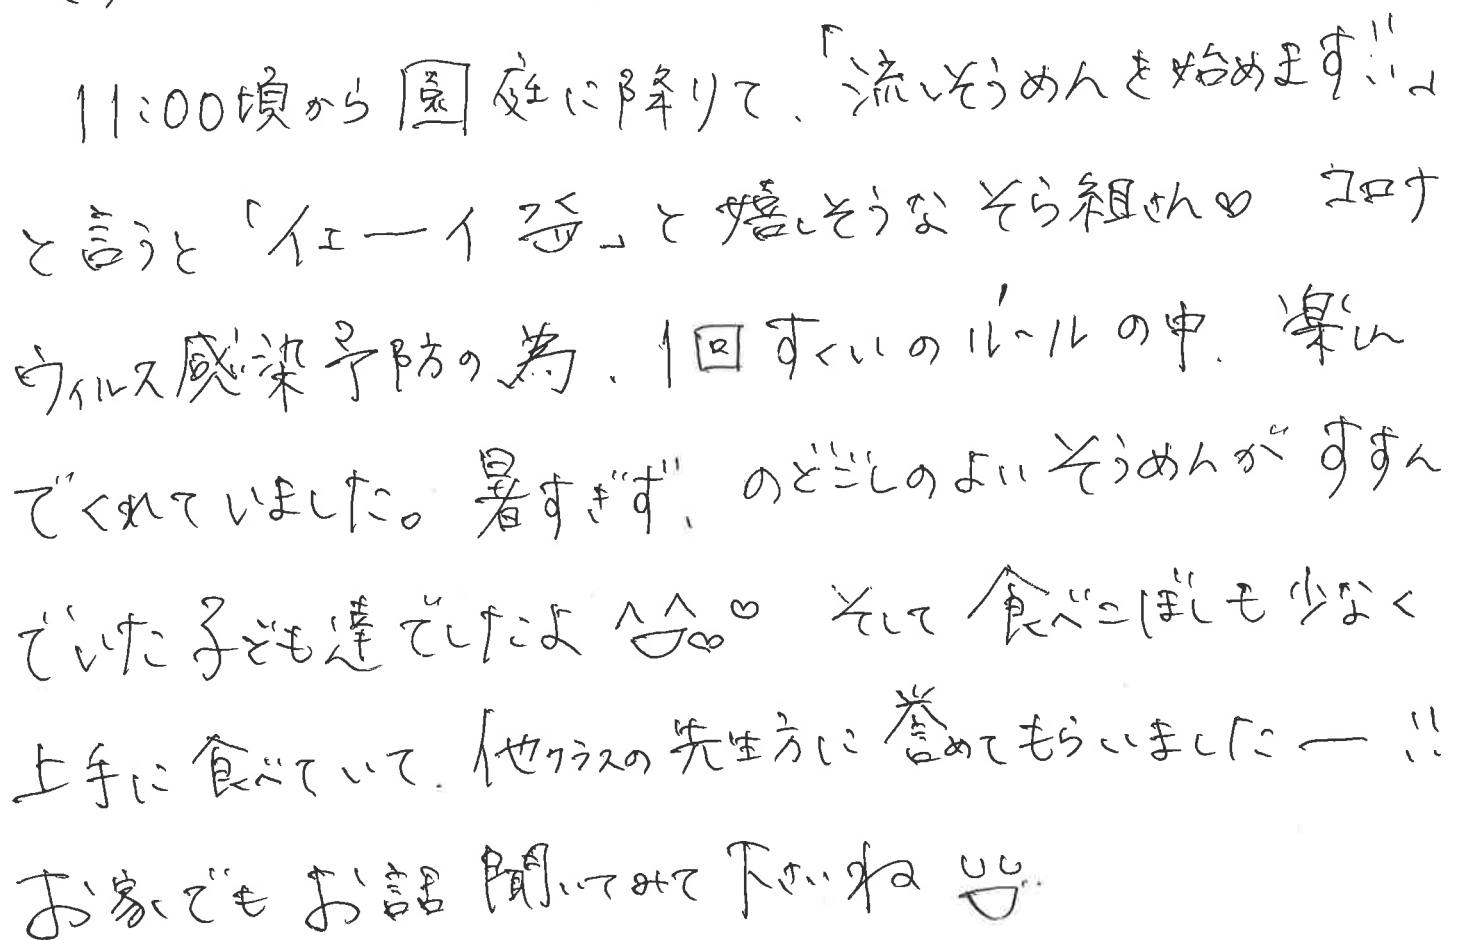 11:00頃から園庭に降りて、「流しそうめんを始めます!!」
と言うと「イェーイ」と嬉しそうなそら組さん♡ コロナ
ウィルス感染予防の為、1回すくいのルールの中、楽しん
でくれていました。暑すぎず、のどごしのよいそうめんがすすん
でいた子ども達でしたよ♡ そして食べこぼしも少なく
上手に食べていて、他クラスの先生方に誉めてもらいましたー!!
お家でもお話聞いてみて下さいね